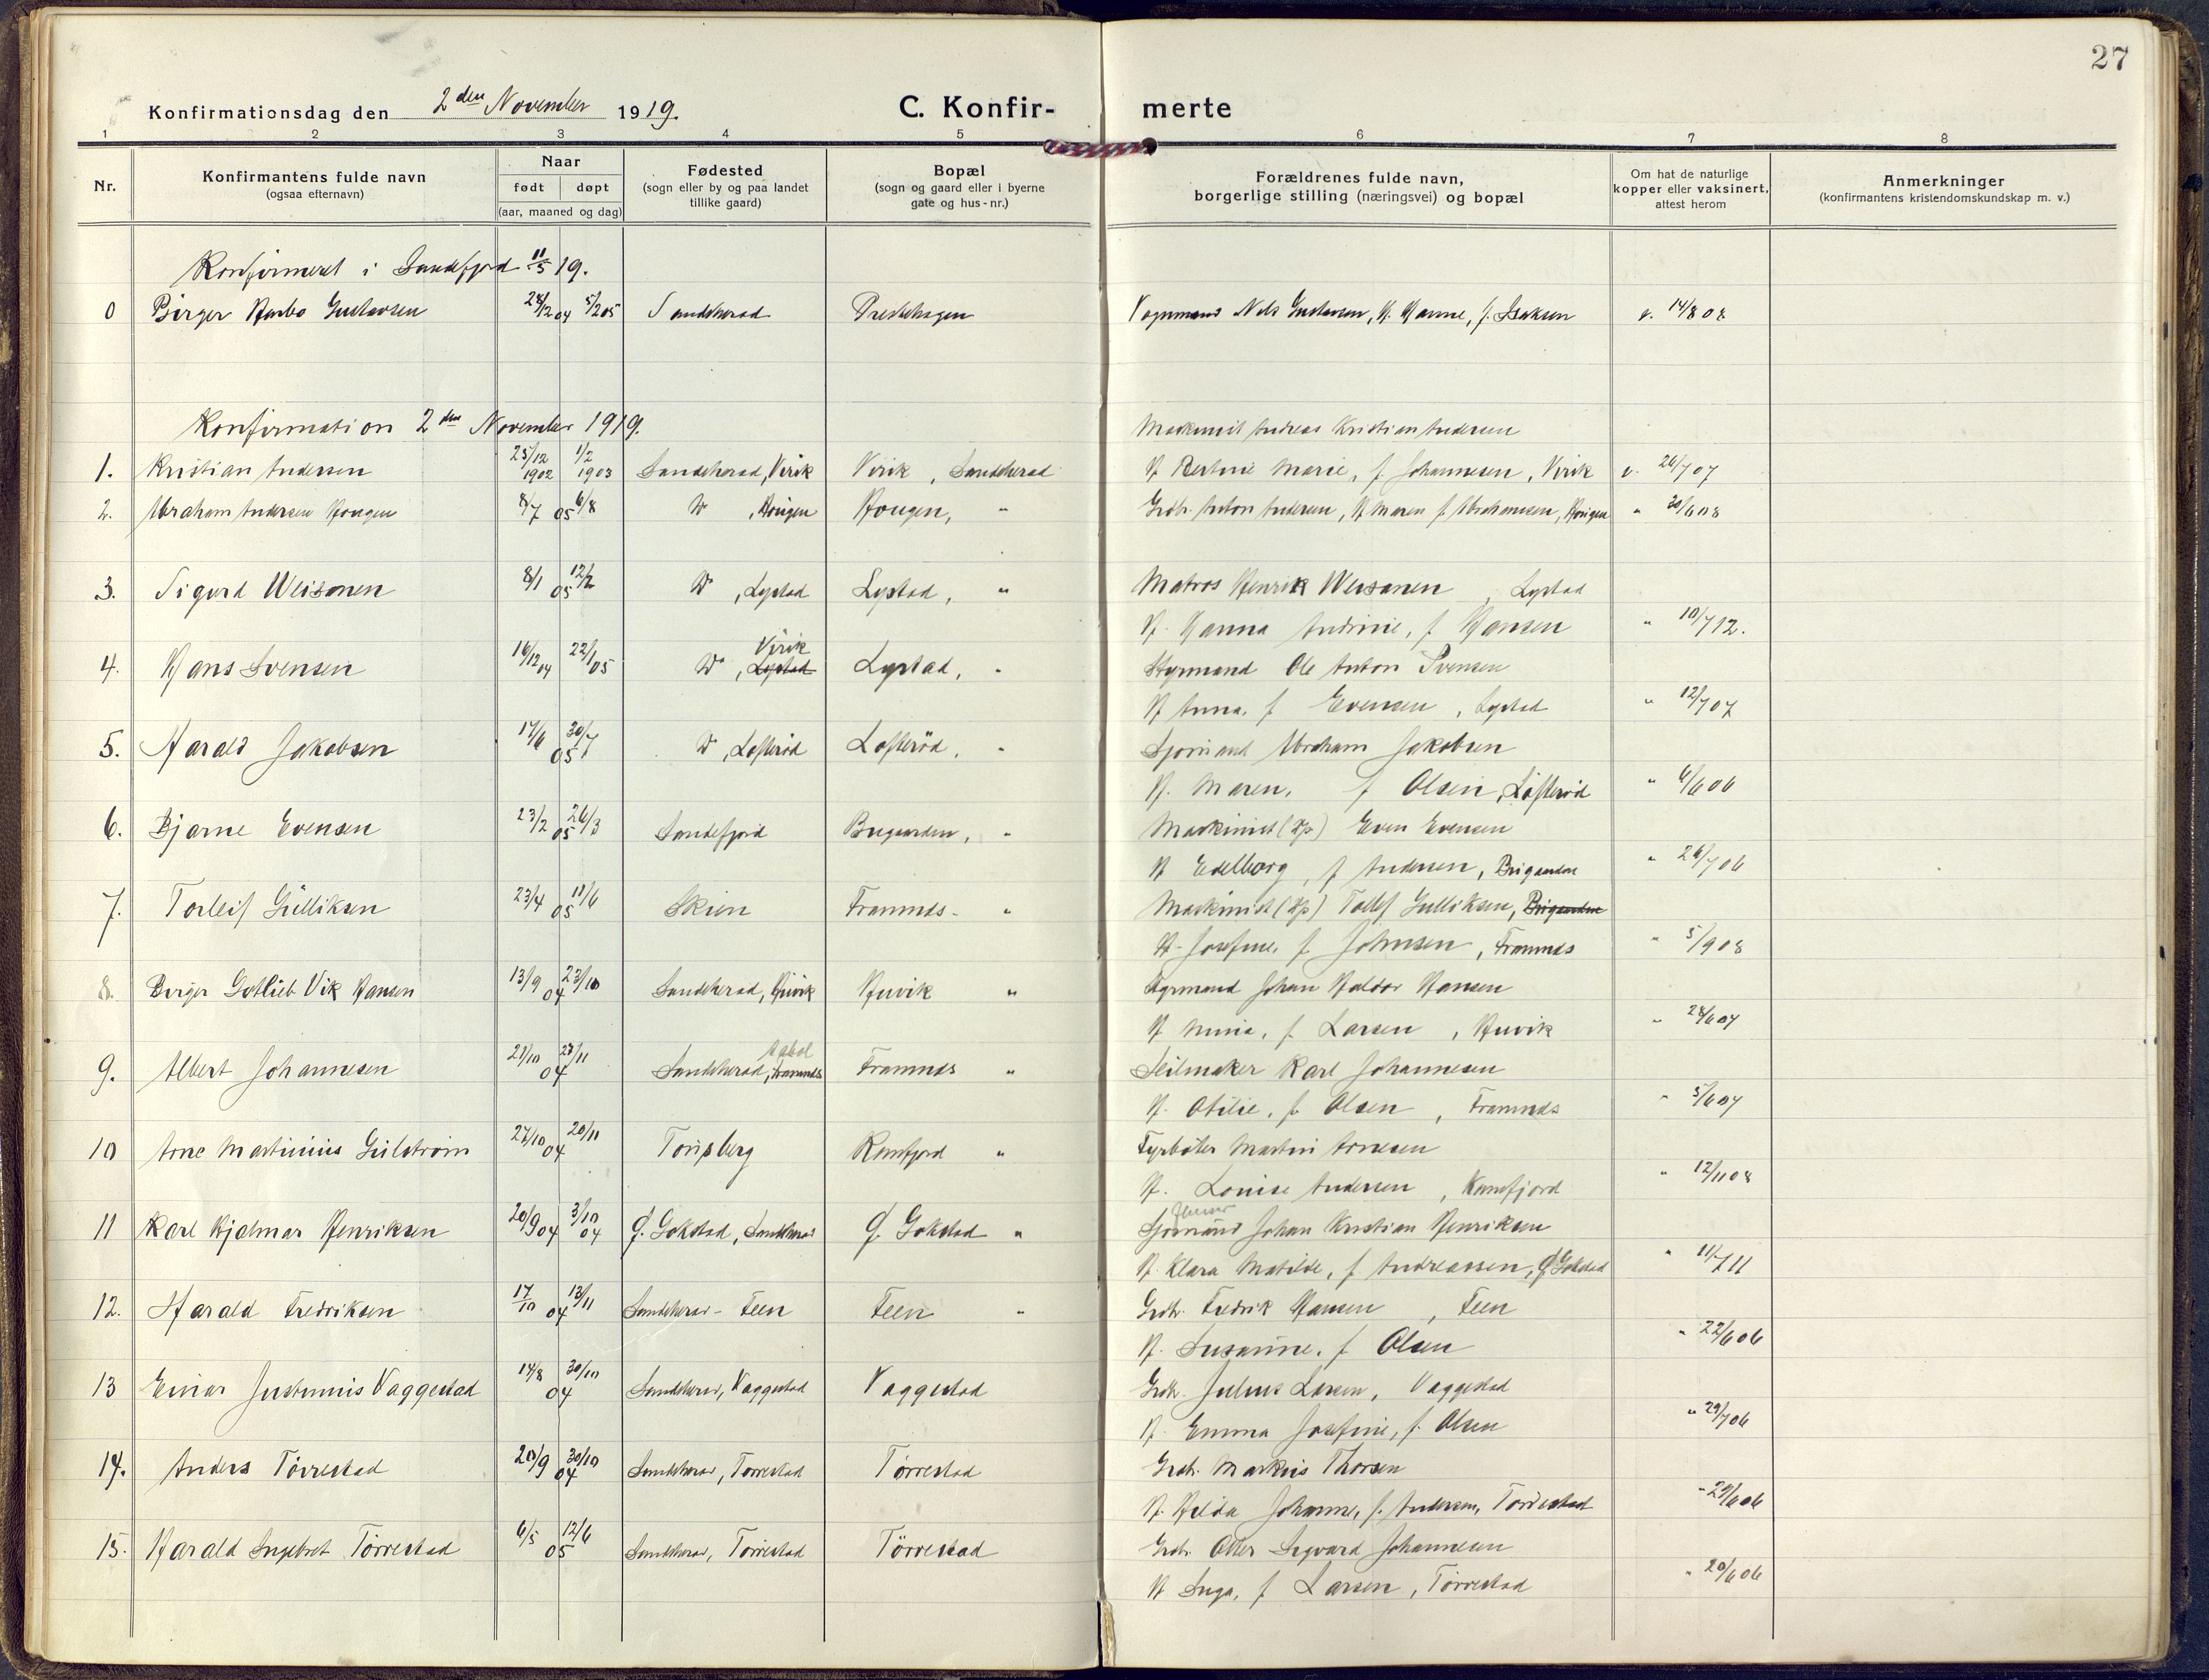 27
Konfirmationsdag den 2den November 1919. C. Konfir- merte
1 2 3 4 5 6 7 8
Nr. Konfirmantens fulde navn (ogsaa efternavn) Naar født døpt (aar, maaned og dag) Fødested (sogn eller by og paa landet tillike gaard) Bopæl (sogn og gaard eller i byerne gate og hus-nr.) Forældrenes fulde navn, borgerlige stilling (næringsvei) og bopæl Om hat de naturlige kopper eller vaksinert, attest herom Anmerkninger (konfirmantens kristendomskundskap m. v.)
Konfirmeret i Sandefjord 11/5 19.
0 Birger Gustavsen 28/12 04 5/2 05 Sandeherad Prestehagen Vognmand Nils Gustavsen, H. Hanne, f. Isaksen v. 14/8 08
Konfirmation 2den November 1919.
Maskinist Andreas Kristian Andersen
1. Kristian Andersen 25/12 1902 1/2 1903 Sandeherad, Virik Virik, Sandeherad H Bertine Marie, f. Johannesen, Virik v. 26/7 07
2. Abraham Andersen Haugen 8/7 05 6/8 Do, Haugen Haugen, " Grdbr. Anton Andersen, H Maren f. Abrahamsen, Haugen " 30/6 08
3. Sigurd Weisonen 8/1 05 12/2 Do, Lystad Lystad, " Matros Henrik Weisanen, Lystad
H. Hanna Andrine, f Hansen " 10/7 12.
4. Hans Svensen 16/12 04 22/1 05 Do, Lystad Virik Lystad, " Styrmand Ole Anton Svensen
H Anna, f Evensen, Lystad " 12/7 07
5. Harald Jakobsen 17/6 05 30/7 Do, Lofterød Lofterød, " Sjømand Abraham Jakobsen
H. Maren, f Olsen, Løfterød " 6/6 06
6. Bjarne Evensen 23/2 05 26/3 Sandefjord Bugaarden, " Maskinist Even Evensen
H Edelborg, f Andersen, " 26/7 06
7. Torleif Gulliksen 23/4 05 11/6 Skien Framnæs - " Maskinist Gulliksen,
H. Josefine, f Johnsen, Framnæs " 5/9 08
8. Birger Gotlieb Vik Hansen 13/9 04 23/10 Sandeherad, Huvik Huvik " Styrmand Johan Haldor Hansen
H Mina, f. Larsen, Huvik " 28/6 07
9. Albert Johannesen 21/10 04 27/11 Sandeherad, Framnæs Framnæs " Seilmaker Karl Johannesen
H. Otilie, f. Olsen, Framnæs " 5/6 07
10 Arne Martinius Gulstrøm 27/10 04 20/11 Tønsberg Kamfjord " Fyrbøter Martin Arnesen
H. Louise Andersen, Kamfjord " 12/11 08
11 Karl Hjalmar Henriksen 20/9 04 3/10 04 Ø. Gokstad, Sandeherad Ø. Gokstad " Sjømand Johan Kristian Henriksen
H. Klara Matilde, f Andreassen, Ø Gokstad " 11/7 11
12. Harald Fredriksen 17/10 04 13/11 Sandeherad - Feen Feen " Grdbr. Fredrik Hansen, Feen
H. Susanne, f Olsen " 22/6 06
13 Einar Justinius Vaggestad 14/8 04 30/10 Sandeherad, Vaggestad Vaggestad Grdbr. Julius Larsen, Vaggestad
H. Emma Josefine, f. Olsen " 29/7 06
14. Anders Tørrestad 20/9 04 30/10 Sandeherad, Tørrestad Tørrestad Grdbr. Markus Thorsen
H. Hilda Johanne, f. Andersen, Tørrestad " 29/6 06
15. Harald Ingebret Tørrestad 6/5 05 12/6 Sandeherad, Tørrestad Tørrestad Grdbr. Otter Sigvard Johannesen
H Inga, f Larsen, Tørrestad " 20/6 06